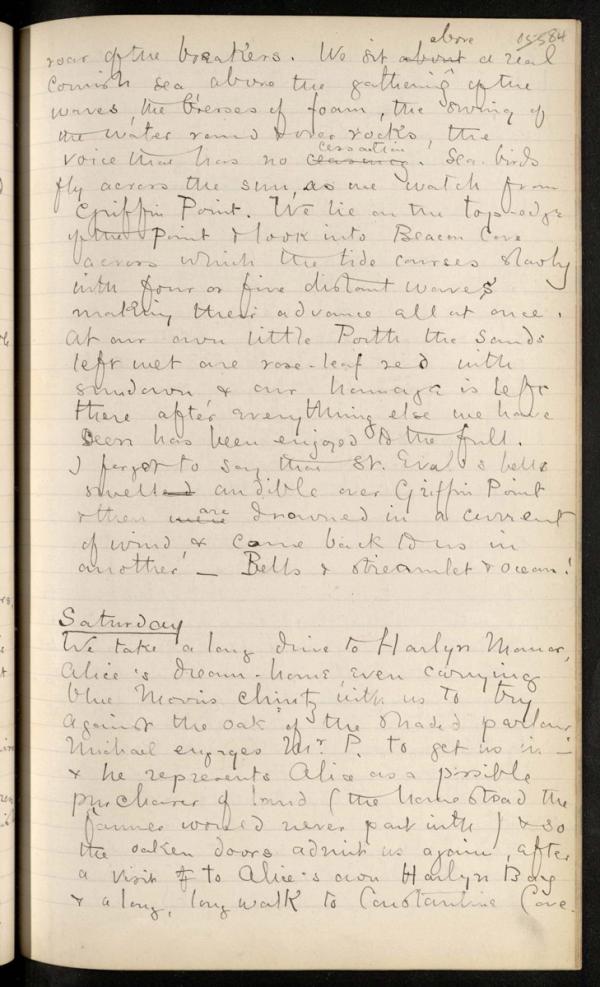 above 05584
roar of the breakers. We sit about a real
Cornish sea above the gathering of the
waves, the of foam, the swing of
the water round & over rocks, the
cessation
voice that has no ceasing. Sea-birds
fly across the sun, as we watch from
Griffin Point. We lie on the top-edge
of the Point & look into Beacon Cove
across which the tide courses slowly
with four or five distant waves
making their advance all at once.
At our own little Porth the sands
left wet are rose-leaf red with
sundown & our homage is left
there after everything else we have
seen has been enjoyed to the full.
I forgot to say that St. Eval's bells
swelled audible over Griffin Point
are
& then were drowned in a current
of wind, & came back to us in
another — Bells & streamlet & ocean!
Saturday
We take a long drive to Harlyn Manor,
Alice's dream-home, even carrying
blue Morris chintz with us to try
against the oak of the shaded parlour
Michael engages Mr. P. to get us in —
& he represents Alice as a possible
purchaser of land (the homestead the
farmer would never part with) & so
the oaken doors admit us again, after
a visit to Alice's own Harlyn Bay
& a long, long walk to Constantine Cove.